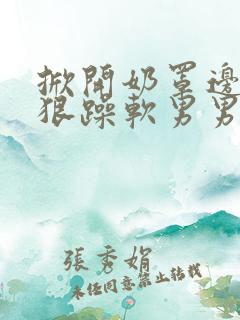 掀開奶罩邊
狠躁軟男男
張秀娟
未经同意禁止转载